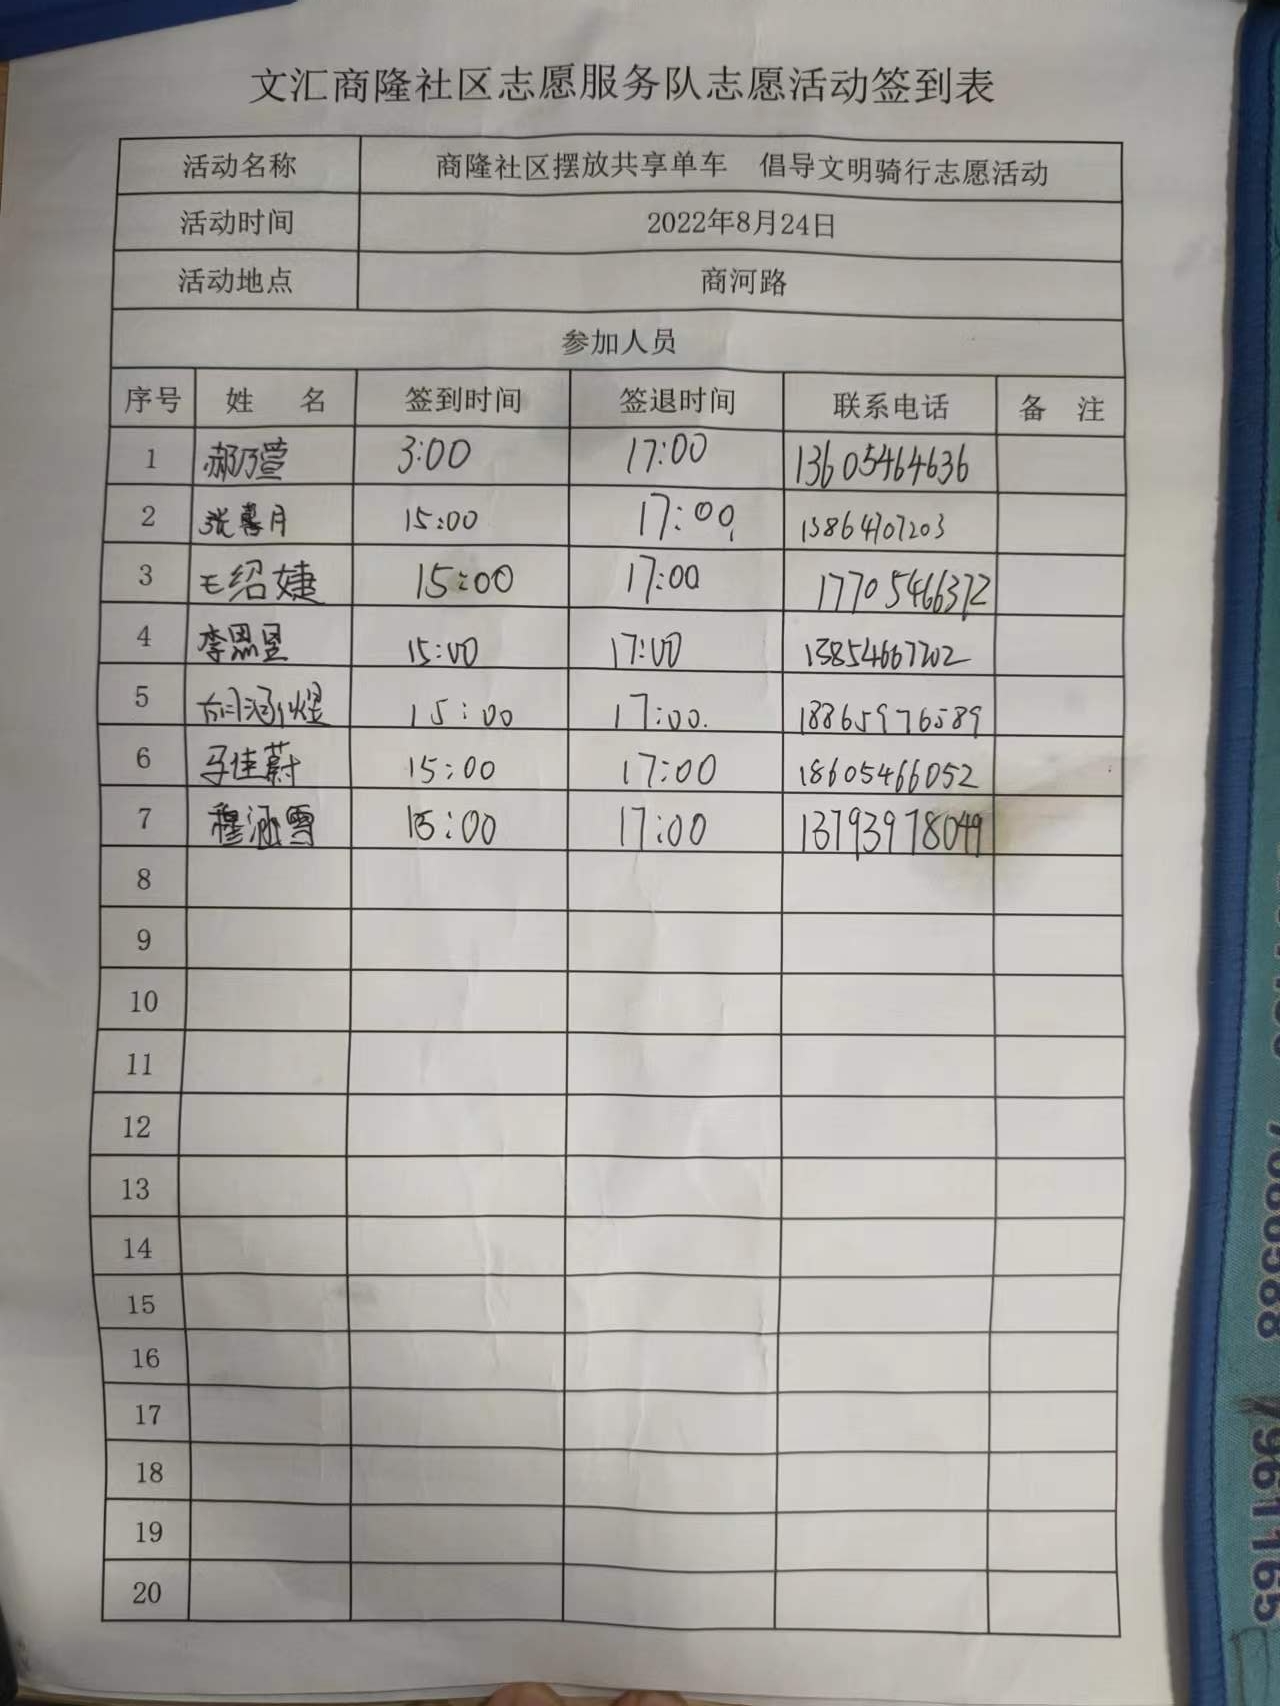 文汇商隆社区志愿服务队志愿活动签到表
活动名称 商隆社区摆放共享单车 倡导文明骑行志愿活动
活动时间 2022年8月24日
活动地点 商河路
参加人员
序号 姓 名 签到时间 签退时间 联系电话 备 注
1 郝乃萱 3:00 17:00 13605464636
2 张喜月 15:00 17:00 13864707203
3 王绍婕 15:00 17:00 17705466372
4 李思昱 15:00 17:00 13854667202
5 15:00 17:00. 18865976589
6 马佳蔚 15:00 17:00 18605466052
7 穆涵雪 15:00 17:00 13793978049
8
9
10
11
12
13
14
15
16
17
18
19
20